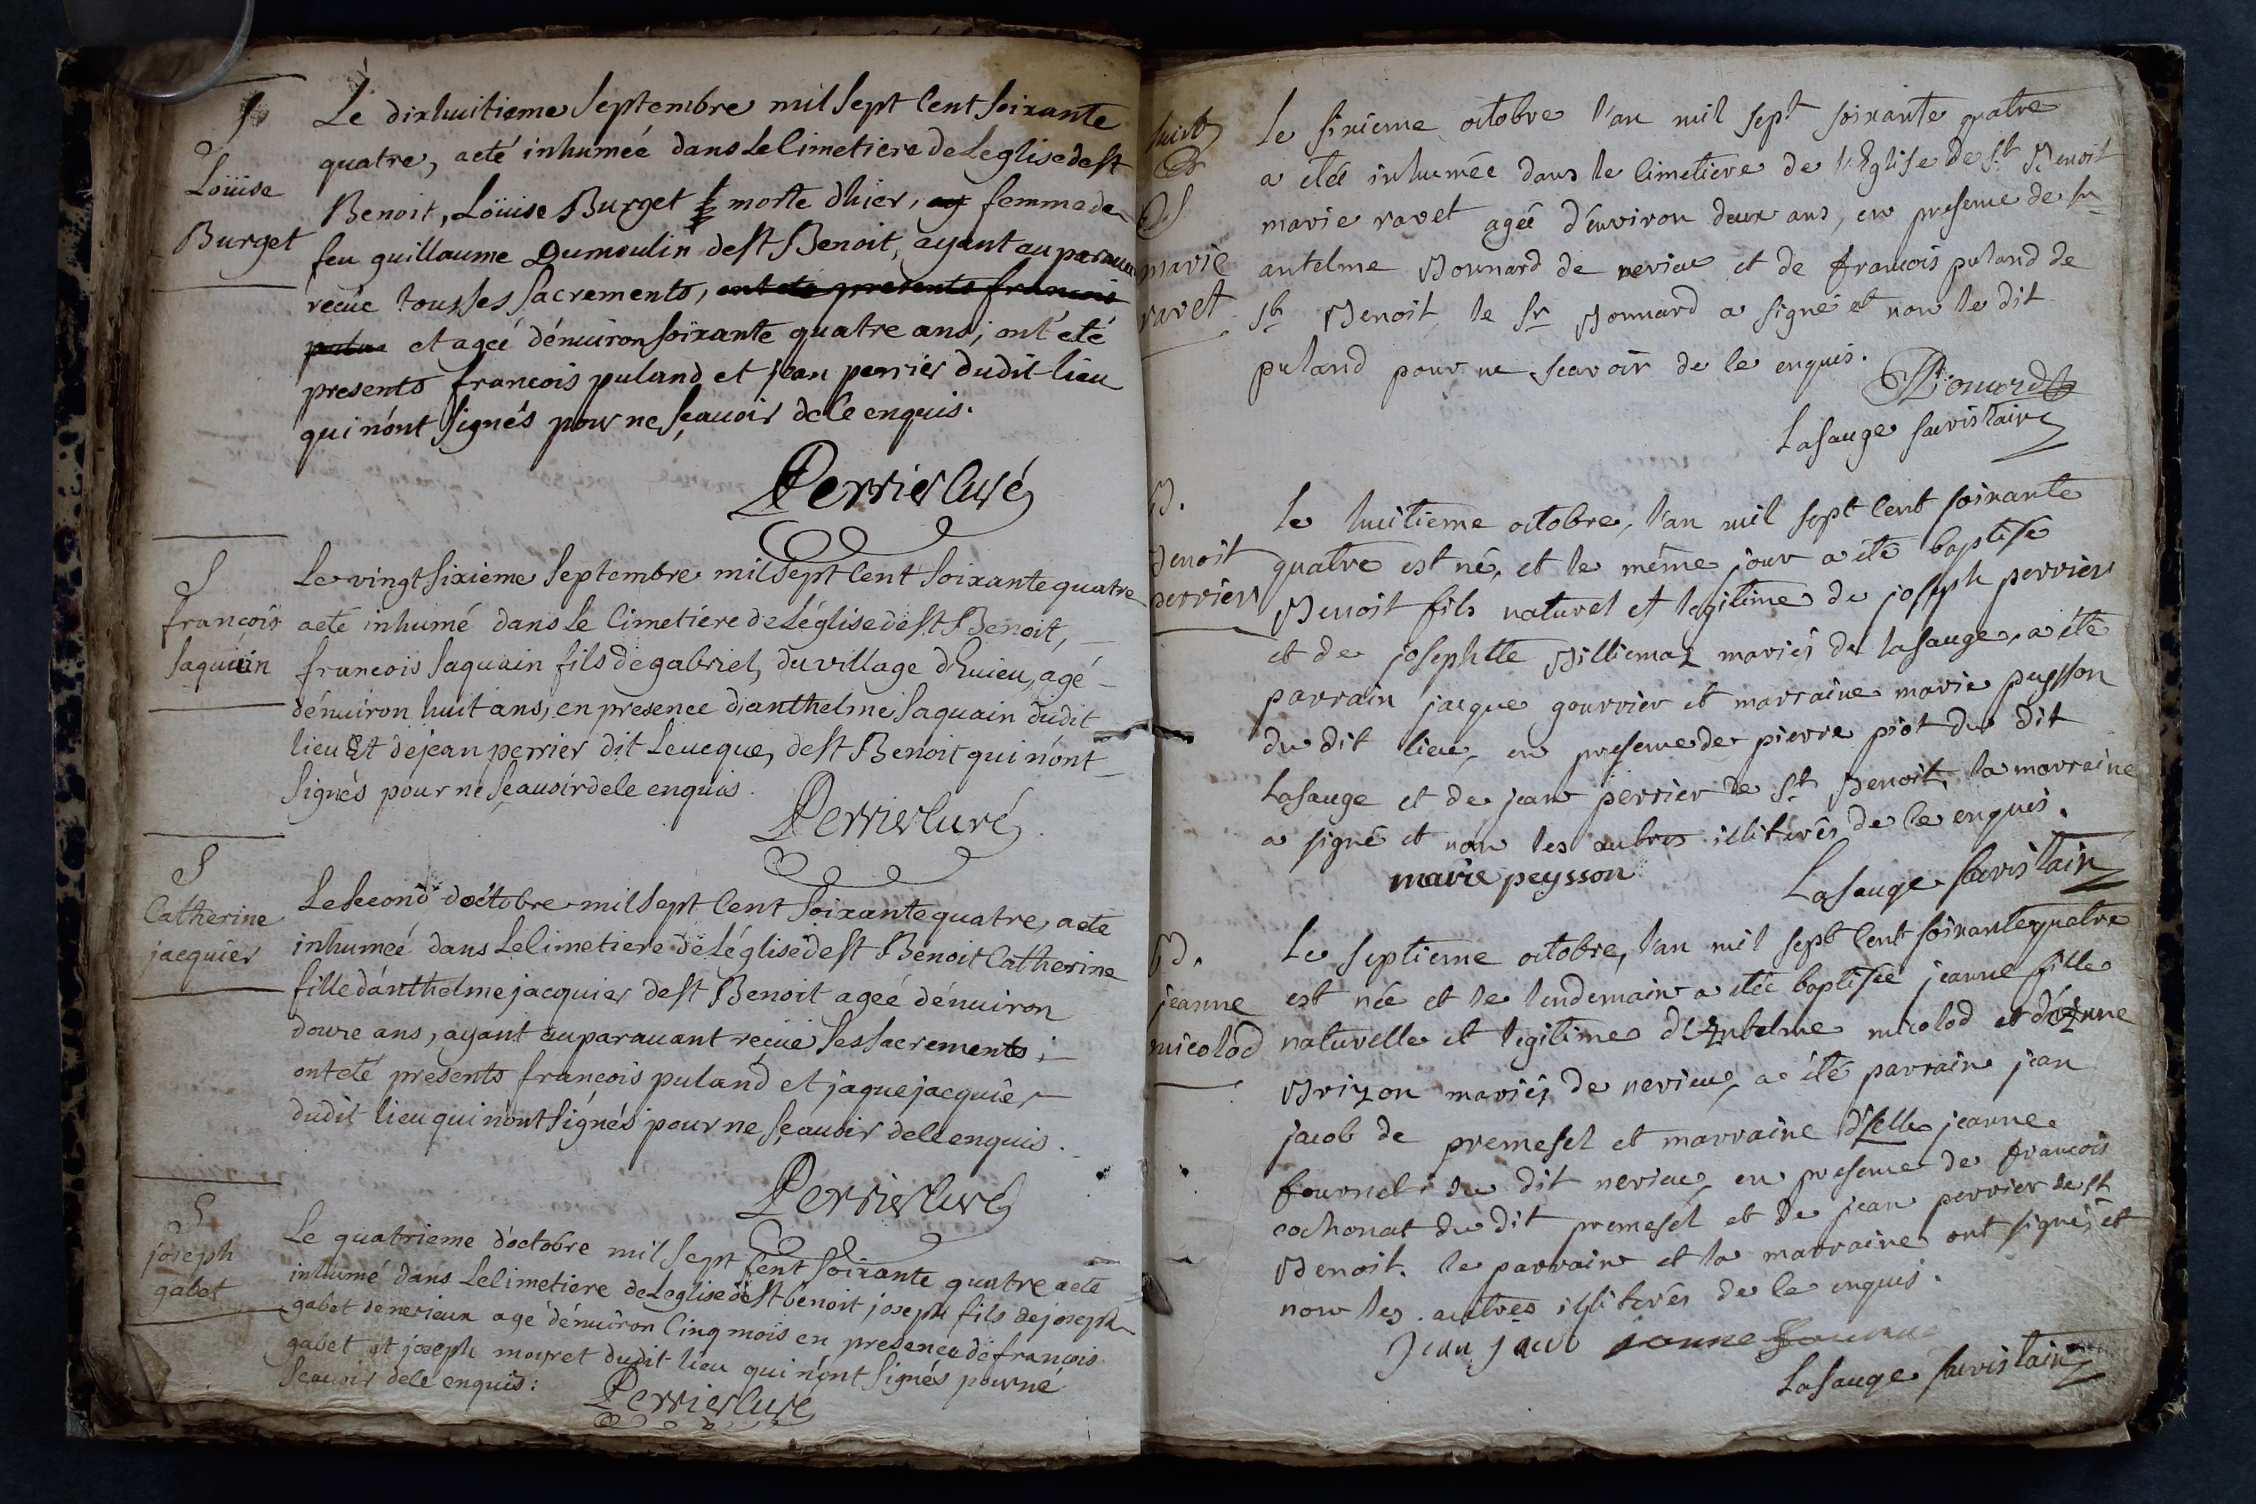 S
Loüise
Burget
Le dixhuitieme Septembre mil Sept Cent Soixante
quatre, a eté inhumeé dans Le Cimetiere de Leglise de st
Benoit, Loüise Burget morte d'hier, femme de
feu guillaume Dumoulin de st Benoit, ayant auparauant
recüe tous ses Sacrements, ont eté presents francois
et ageé d'énuiron soixante quatre ans; ont eté
presents francois puland et jean perrier dudit lieu
qui n'ont signés pour ne sçauoir de Ce enquis.
Perrier Curé
S
françois
Saquain
Le vingt sixieme Septembre mil Sept Cent Soixante quatre
a eté inhumé dans Le Cimetiére de L'église de st Benoit,
francois Saquain fils de gabriel, du village d'huieu, agé
d'énuiron huit ans, en presence d'anthelme Saquain dudit
lieu Et de jean perrier dit Leueque, de st Benoit qui n'ont
Signés pour ne Sçauoir de Ce enquis.
Perrier Curé
S
Catherine
jacquier
Le Second d'octobre mil Sept Cent Soixante quatre, a eté
inhumeé dans Le Cimetiere de L'église de st Benoit Catherine
fille d'anthelme jacquier de st Benoit ageé d'énuiron
douze ans, ayant auparauant recüe Ses Sacrements;
ont eté presents francois puland et jaque jacquier
dudit lieu qui n'ont Signés pour ne Sçauoir de Ce enquis.
Perrier Curé
S
joseph
gabet
Le quatrieme d'octobre mil Sept Cent Soixante quatre a eté
inhumé dans Le Cimetiere de Leglise de st benoit joseph fils de joseph
gabet de nerieux agé d'énuiron Cinq mois en presence de francois
gabet et joseph moyret dudit lieu qui n'ont Signés pour ne
Scauoir de Ce enquis:
Perrier Curé
S
marie
ravet
Le sixieme octobre l'an mil sept soixante quatre
a etée inhumée dans le Cimetiere de l'Eglise de st Benoit
marie ravet ageé d'énviron deux ans, en presence de sr
antelme Bonnard de nerieu et de francois puland de
st Benoit, le sr Bonnard a signé et non le dit
puland pour ne scavoir de ce enquis.
Bonard
Lasauge sacristain
B.
Benoit
perrier
Le huitieme octobre, l'an mil sept Cent soixante
quatre est né, et le même jour a été baptisé
Benoit fils naturel et legitime de joseph perrier
et de josephtte Billiemaz mariés de lasauge, a été
parrain jacque gourrier et marraine marie peysson
du dit lieu, en presence de pierre piot du dit
Lasauge et de jean perrier de st Benoit, la marraine
a signé et non les autres illiterés de ce enquis.
marie peysson
Lasauge sacristain
B.
jeanne
micolod
Le septieme octobre, l'an mil sept Cent soixante quatre
est née et le lendemain a eté baptisée jeanne fille
naturelle et legitime d'Antelme micolod et d'
Brizon mariés de nerieu, a été parrain jean
jacob de premesel et marraine dselle jeanne
fournel du dit nerieu, en presence de francois
cochonat du dit premesel et de jean perrier de st
Benoit. le parrain et la marraine ont signés et
non les autres illiterés de ce enquis.
Jean jacob jeanne
Lasauge sacristain